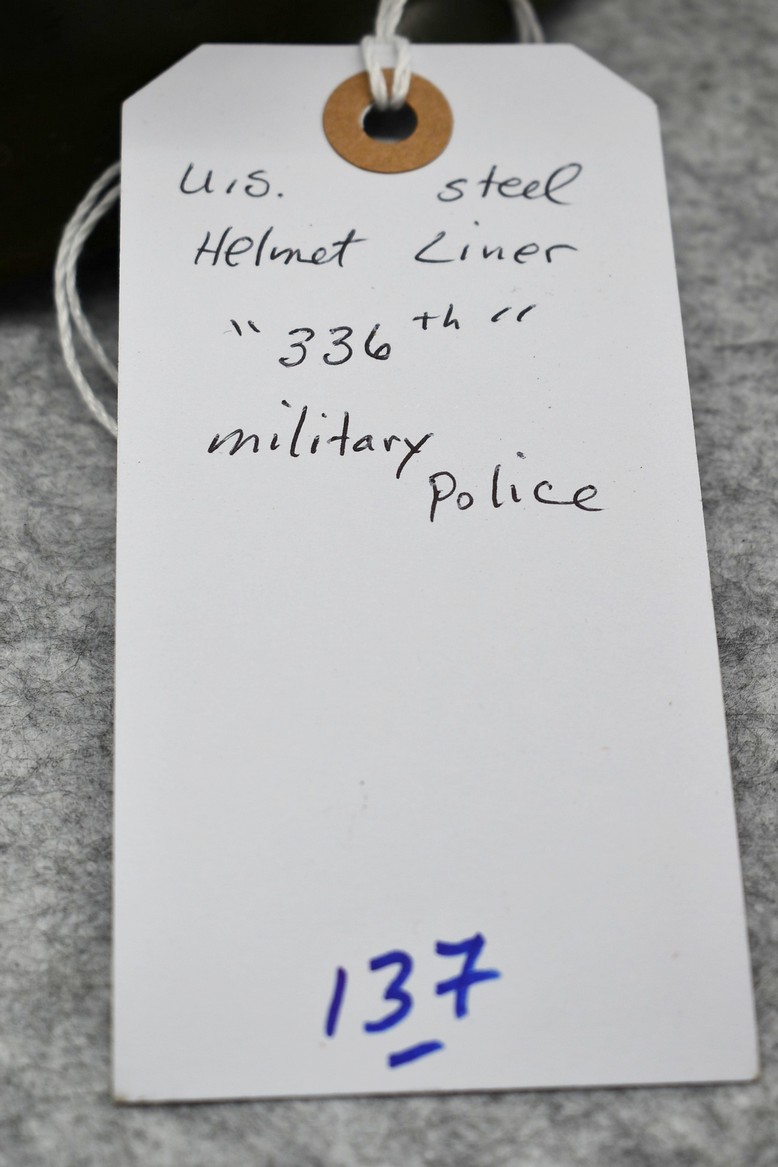 U.S. steel
Helmet Liner
"336th"
military
Police
137